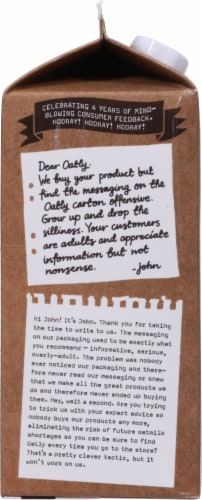 CELEBRATING 4 YEARS OF MIND-
BLOWING CONSUMER FEEDBACK.
HOORAY! HOORAY! HOORAY!
Dear Oatly.
We buy your product but
find the messaging on the
Oatly carton offensive.
Grow up and drop the
silliness. Your customers
are adults and appreciate
information but not
nonsense. -John
Hi John! It's John. Thank you for taking
the time to write to us. The messaging
on our packaging used to be exactly what
you recommend – informative, serious,
overly-adult. The problem was nobody
ever noticed our packaging and there-
fore never read our messaging or knew
that we make all the great products we
do and therefore never ended up buying
them. Hey, wait a second. Are you trying
to trick us with your expert advice so
nobody buys our products any more,
eliminating the risk of future oatmilk
shortages so you can be sure to find
Oatly every time you go to the store?
That's a pretty clever tactic, but it
won't work on us.